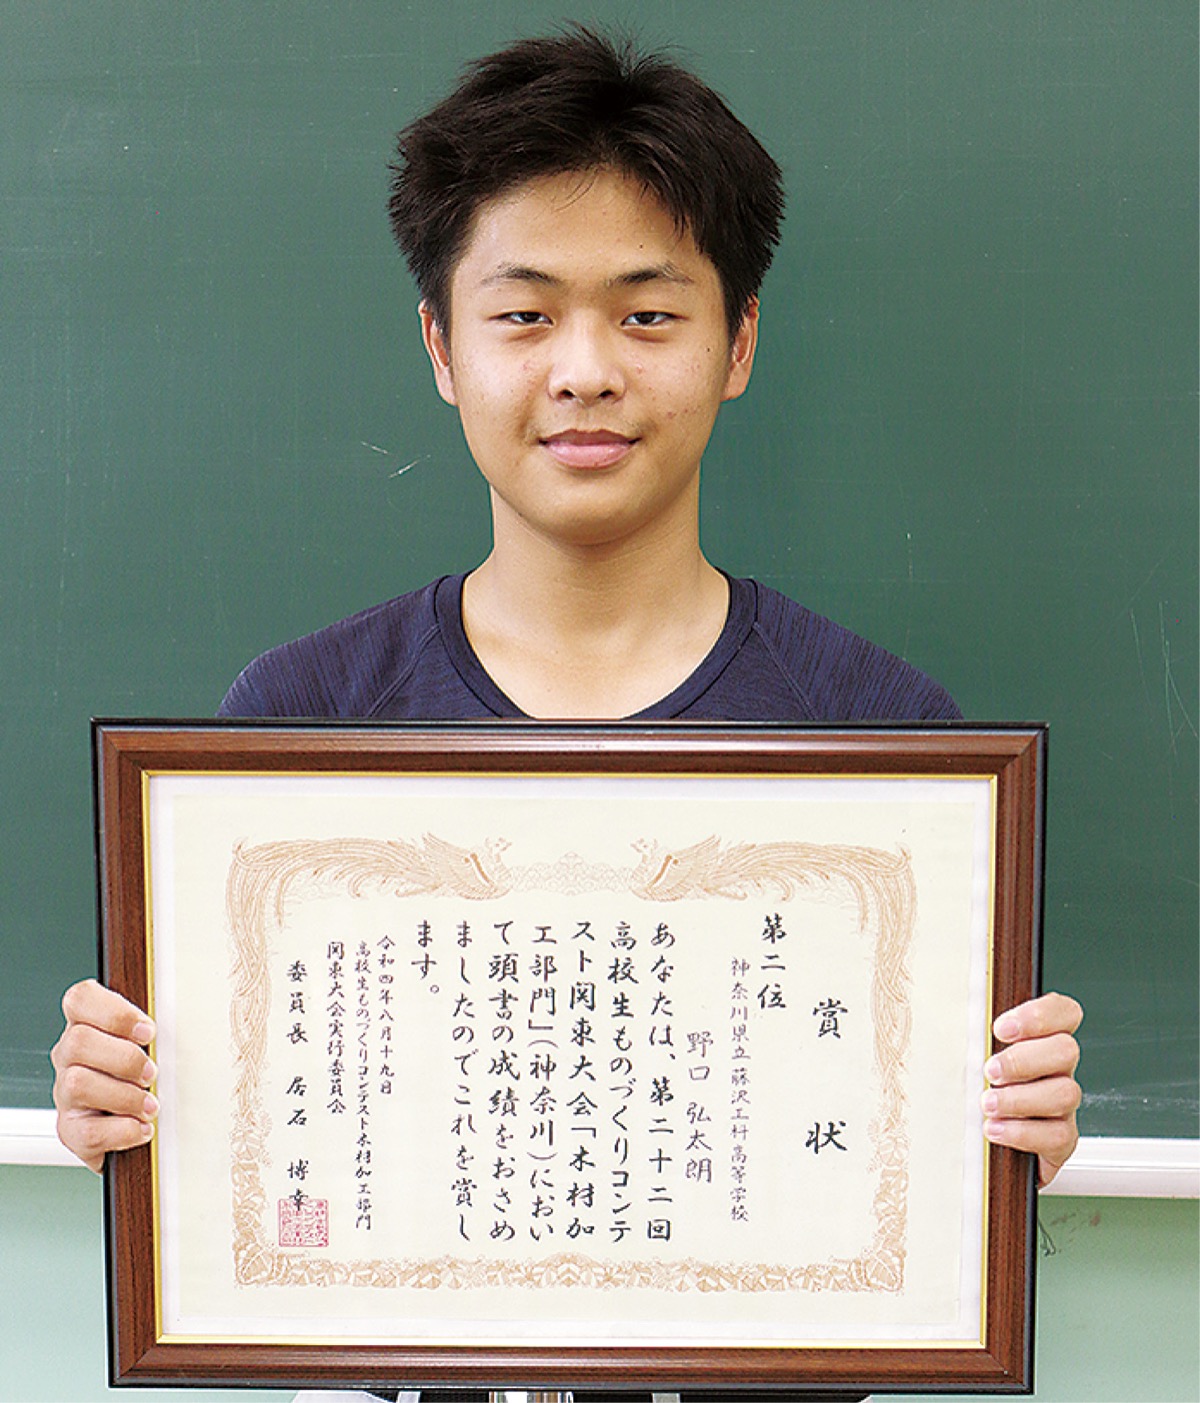 賞状
第二位
神奈川県立藤沢工科高等学校
野口 弘太朗
あなたは、第二十二回
高校生ものづくりコンテ
スト関東大会「木材加
工部門」(神奈川)におい
て頭書の成績をおさめ
ましたのでこれを賞し
ます。
令和四年八月十九日
高校生ものづくりコンテスト木材加工部門
関東大会実行委員会
委員長 居石 博幸